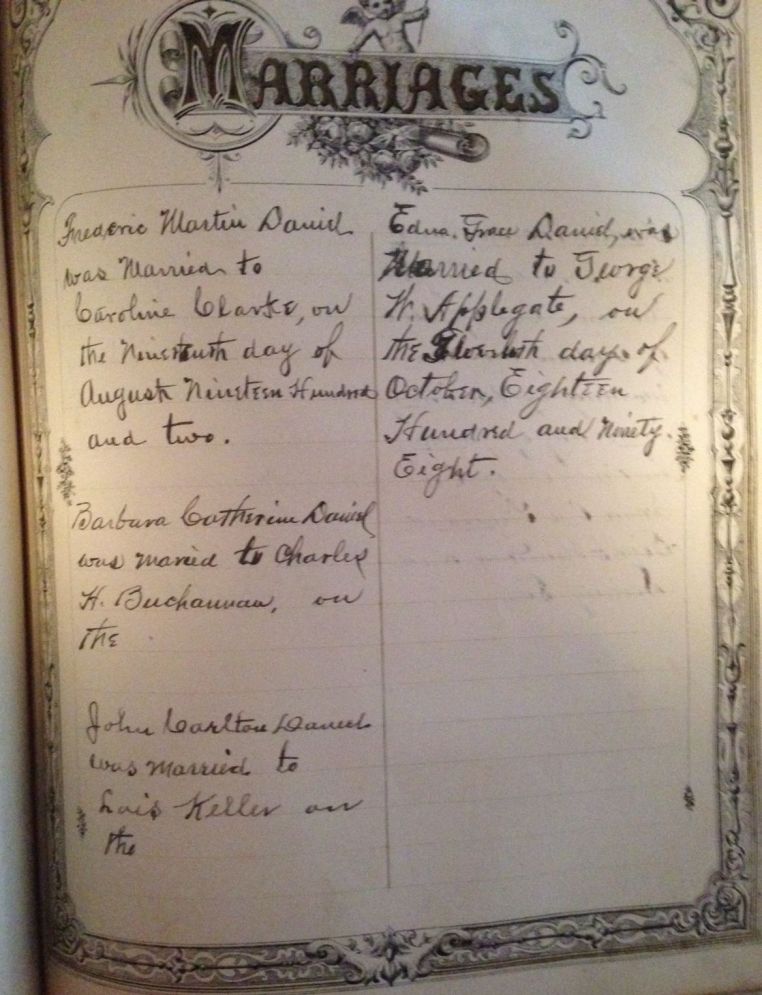 MARRIAGES
Frederic Martin Daniel
was Married to
Caroline Clarke, on
the Nineteenth day of
August Nineteen Hundred
and two.
Barbara Catherine Daniel
was married to Charles
H. Buchannan, on
the
John Carlton Daniel
was married to
Lois Keller on
the
Edna. Grace Daniel, was
Married to George
W. Applegate, on
the Eleventh day of
October, Eighteen
Hundred and Ninety.
Eight.